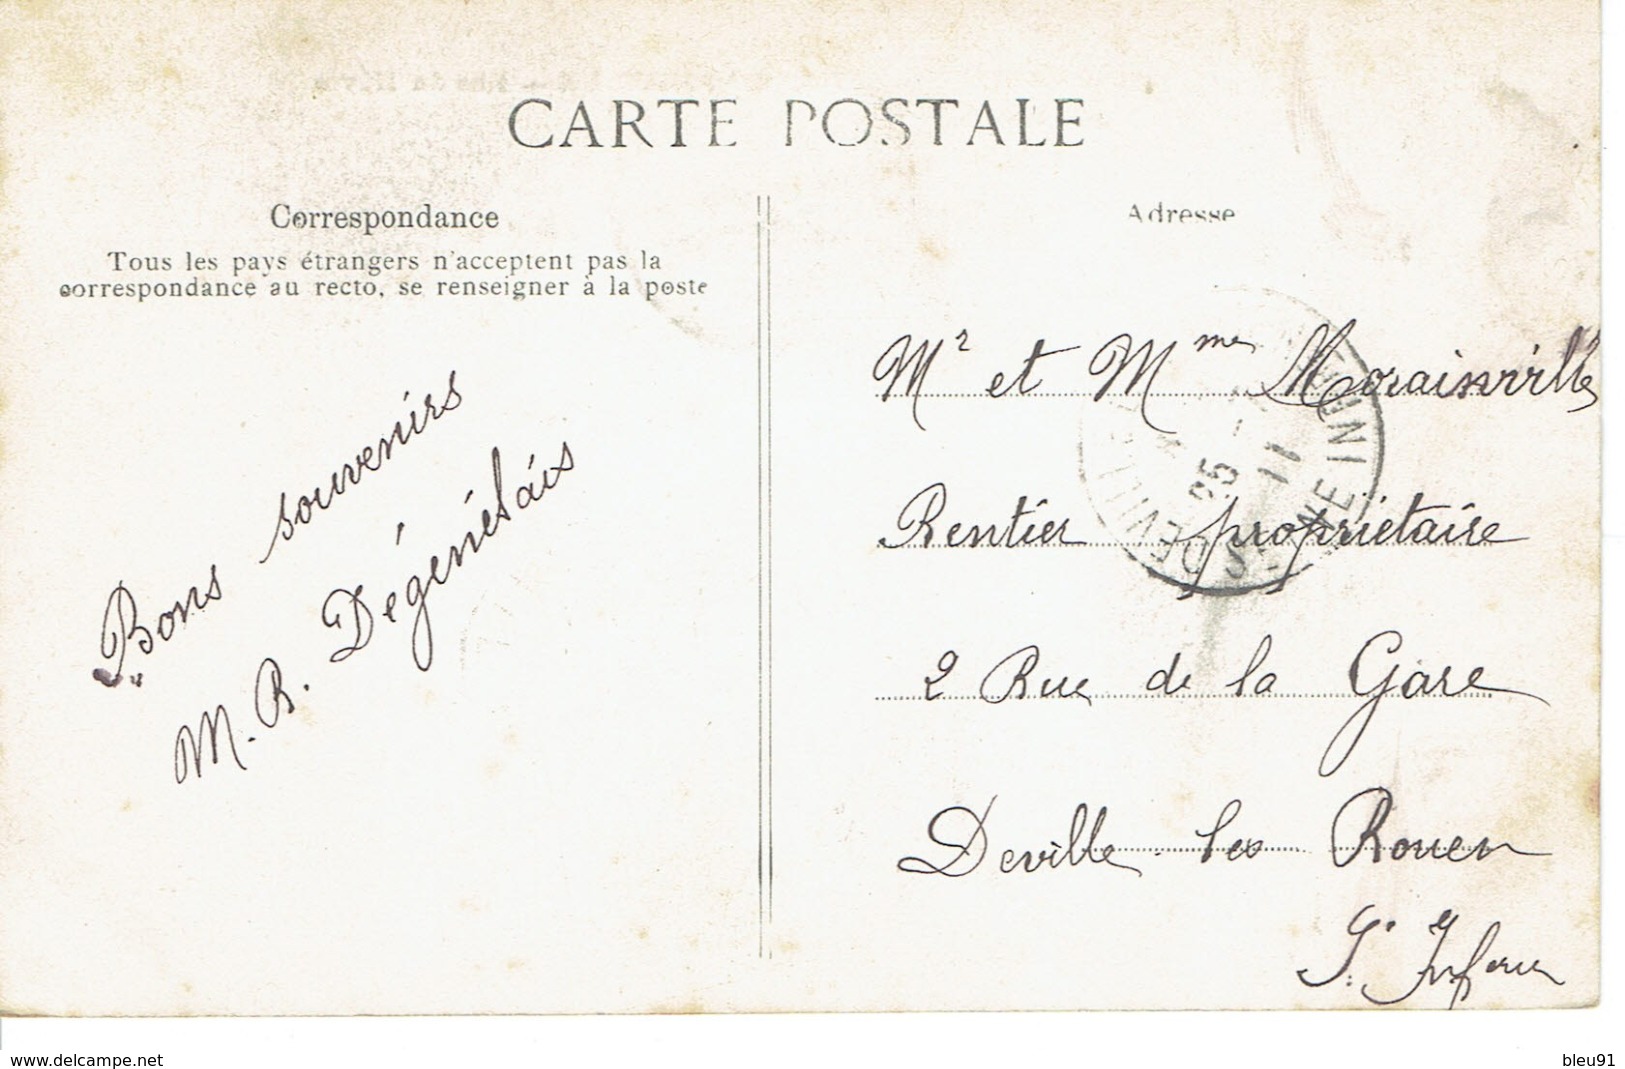 CARTE POSTALE
Correspondance
Tous les pays étrangers n'acceptent pas la
correspondance au recto, se renseigner à la poste
Bons souvenirs
M. R. Dégénétais
Adresse
Mr et Mme Morainville
Rentier propriétaire
2 Rue de la Gare
Deville les Rouen
S. Infeure
DEVILLE
25 - 
11
SEINE INF
www.delcampe.net
bleu91